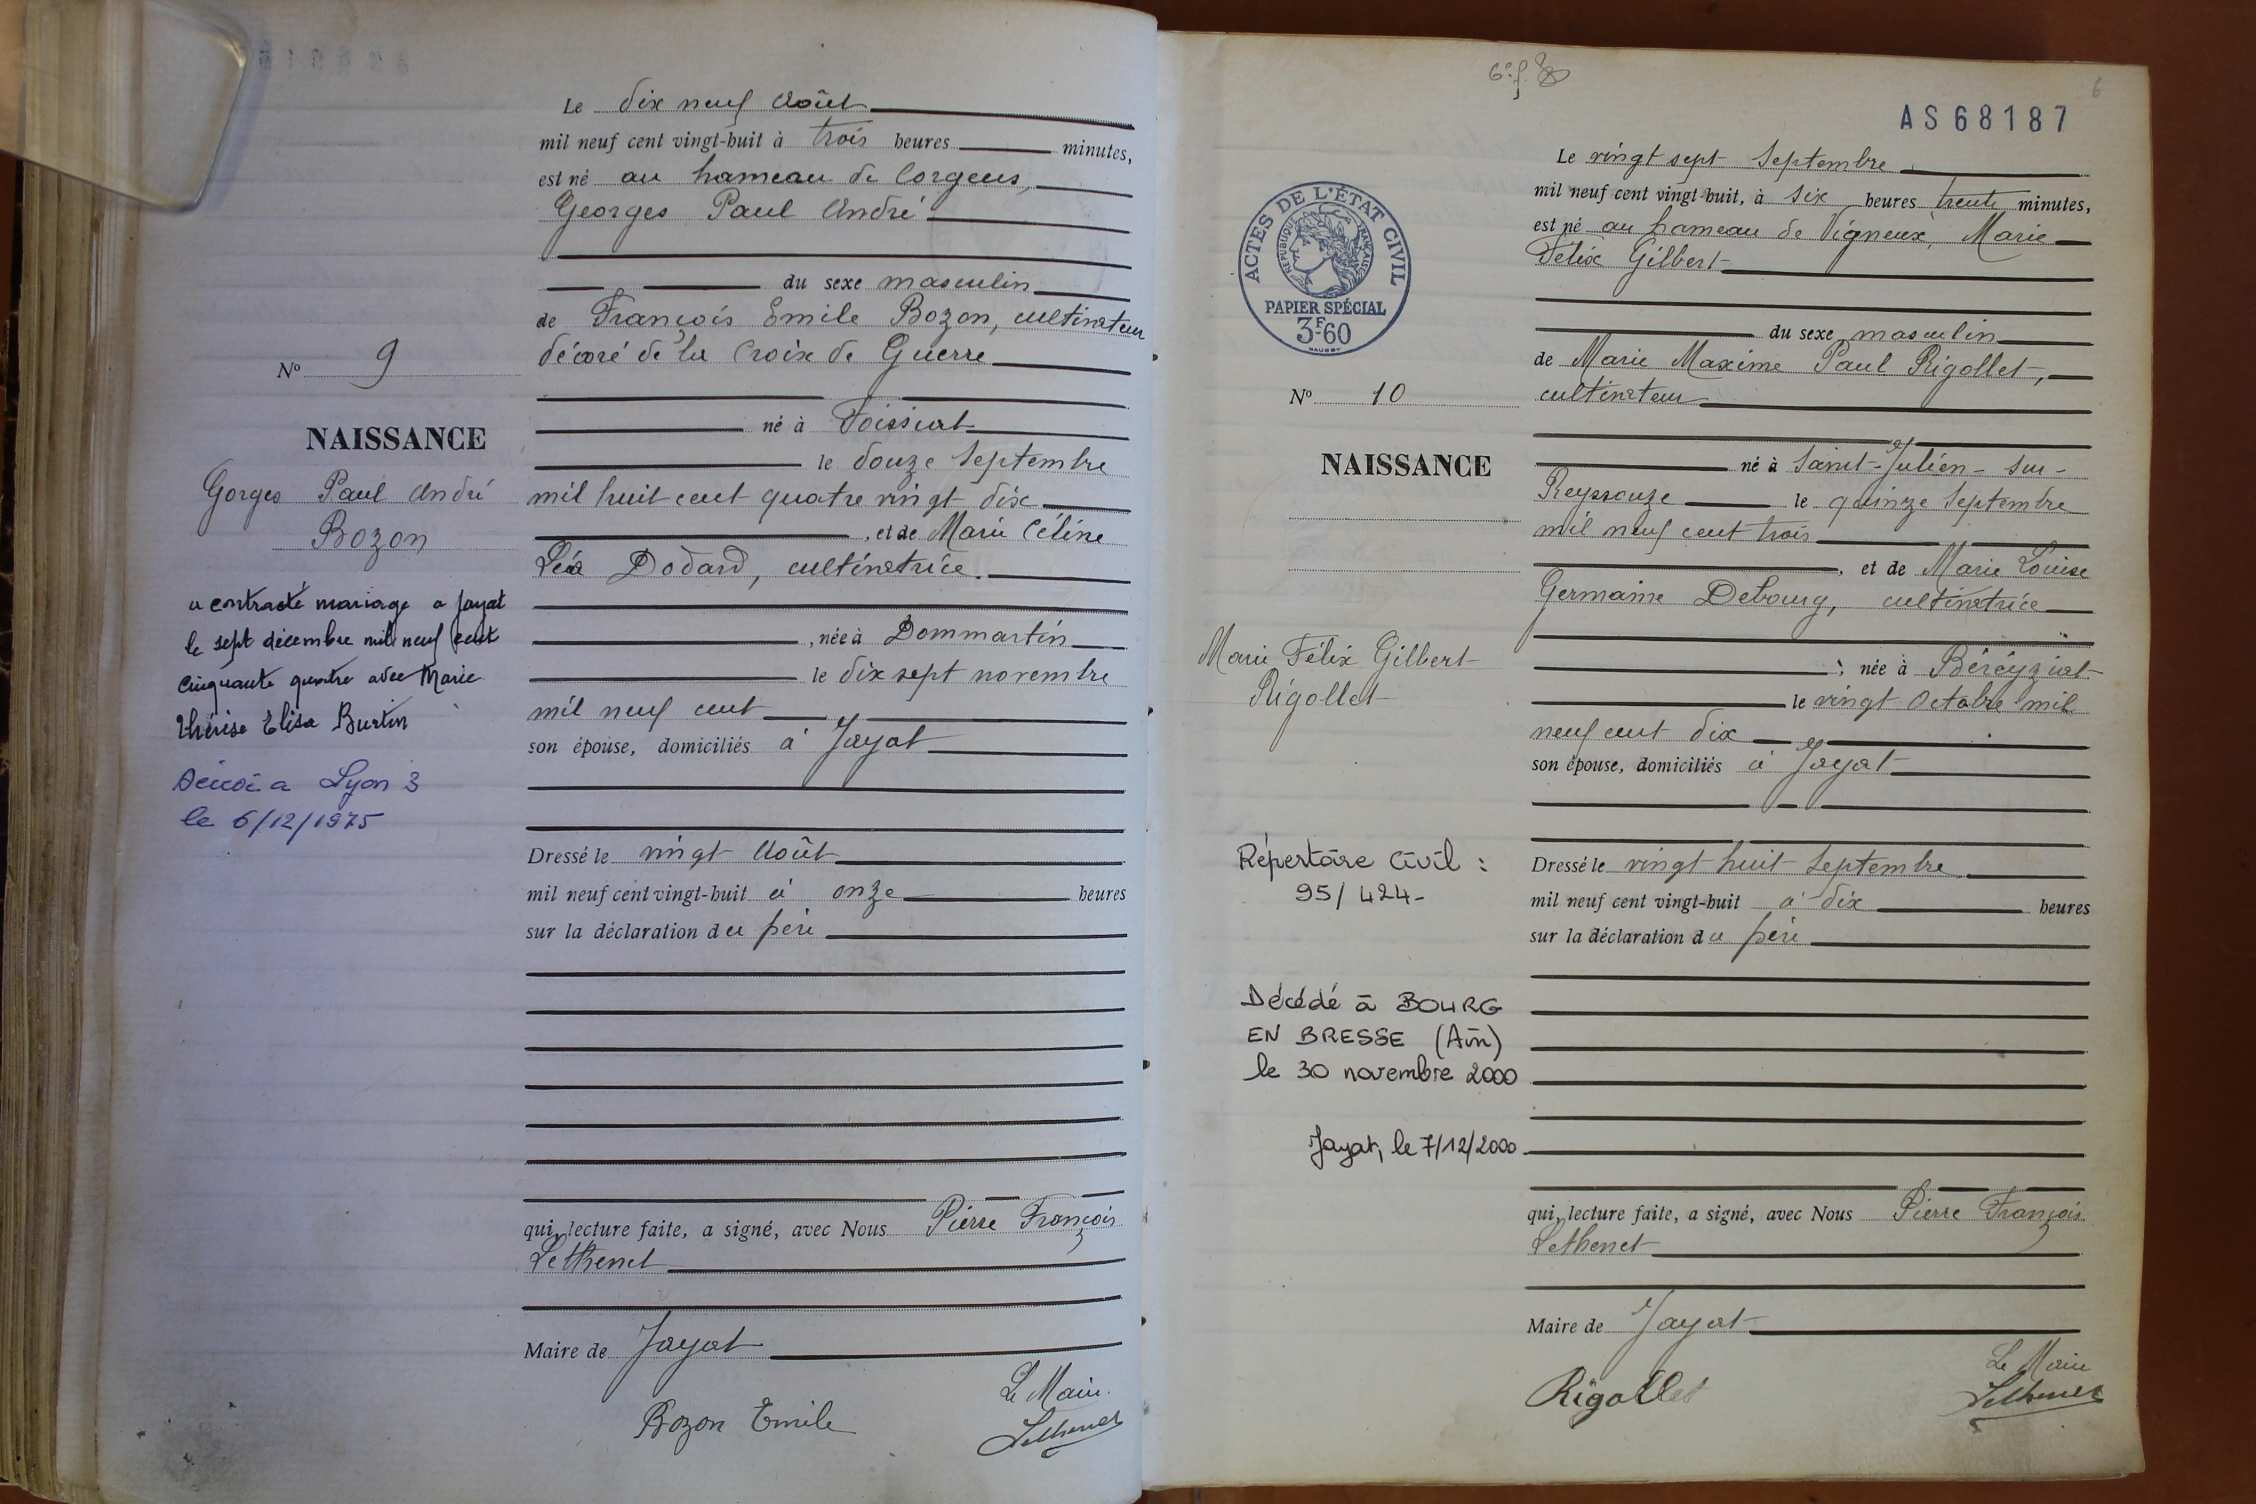 Le dix neuf Août
mil neuf cent vingt-huit à trois heures minutes,
est né au hameau de Corgeus,
Georges Paul André
du sexe masculin
de François Emile Bozon, cultivateur
décoré de la Croix de Guerre
né à Foissiat
le douze Septembre
mil huit cent quatre vingt dix
, et de Marie Céline
Léa Dodard, cultivatrice.
, née à Dommartin
le dix sept novembre
mil neuf cent
son épouse, domiciliés à Jayat
Dressé le vingt Août
mil neuf cent vingt-huit à onze heures
sur la déclaration du père
qui, lecture faite, a signé, avec Nous Pierre François
Lethenet
Maire de Jayat
Le Maire
Bozon Emile
Lethenet
No 9
NAISSANCE
Gorges Paul André
Bozon
a contracté mariage a Jayat
le sept décembre mil neuf cent
cinquante quatre avec Marie
thérèse Elisa Burtin
Décédé a Lyon 3
le 6/12/1975
6e f.
6
AS68187
ACTES DE L'ÉTAT CIVIL
RÉPUBLIQUE FRANÇAISE
PAPIER SPÉCIAL
3F60
Le vingt sept Septembre
mil neuf cent vingt-huit, à six heures trente minutes,
est né au hameau de Vigneux, Marie
Félix Gilbert
du sexe masculin
de Marie Maxime Paul Rigollet,
cultivateur
né à Saint-Julien-sur-
Reyssouze le quinze Septembre
mil neuf cent trois
, et de Marie Louise
Germaine Debourg, cultivatrice
, née à Béréyziat
le vingt Octobre mil
neuf cent dix
son épouse, domiciliés à Jayat
Dressé le vingt huit Septembre
mil neuf cent vingt-huit à dix heures
sur la déclaration du père
qui, lecture faite, a signé, avec Nous Pierre François
Lethenet
Maire de Jayat
Le Maire
Rigollet
Lethenet
No 10
NAISSANCE
Marie Félix Gilbert
Rigollet
Répertoire Civil :
95/424-
Décédé à BOURG
EN BRESSE (Ain)
le 30 novembre 2000
Jayat, le 7/12/2000